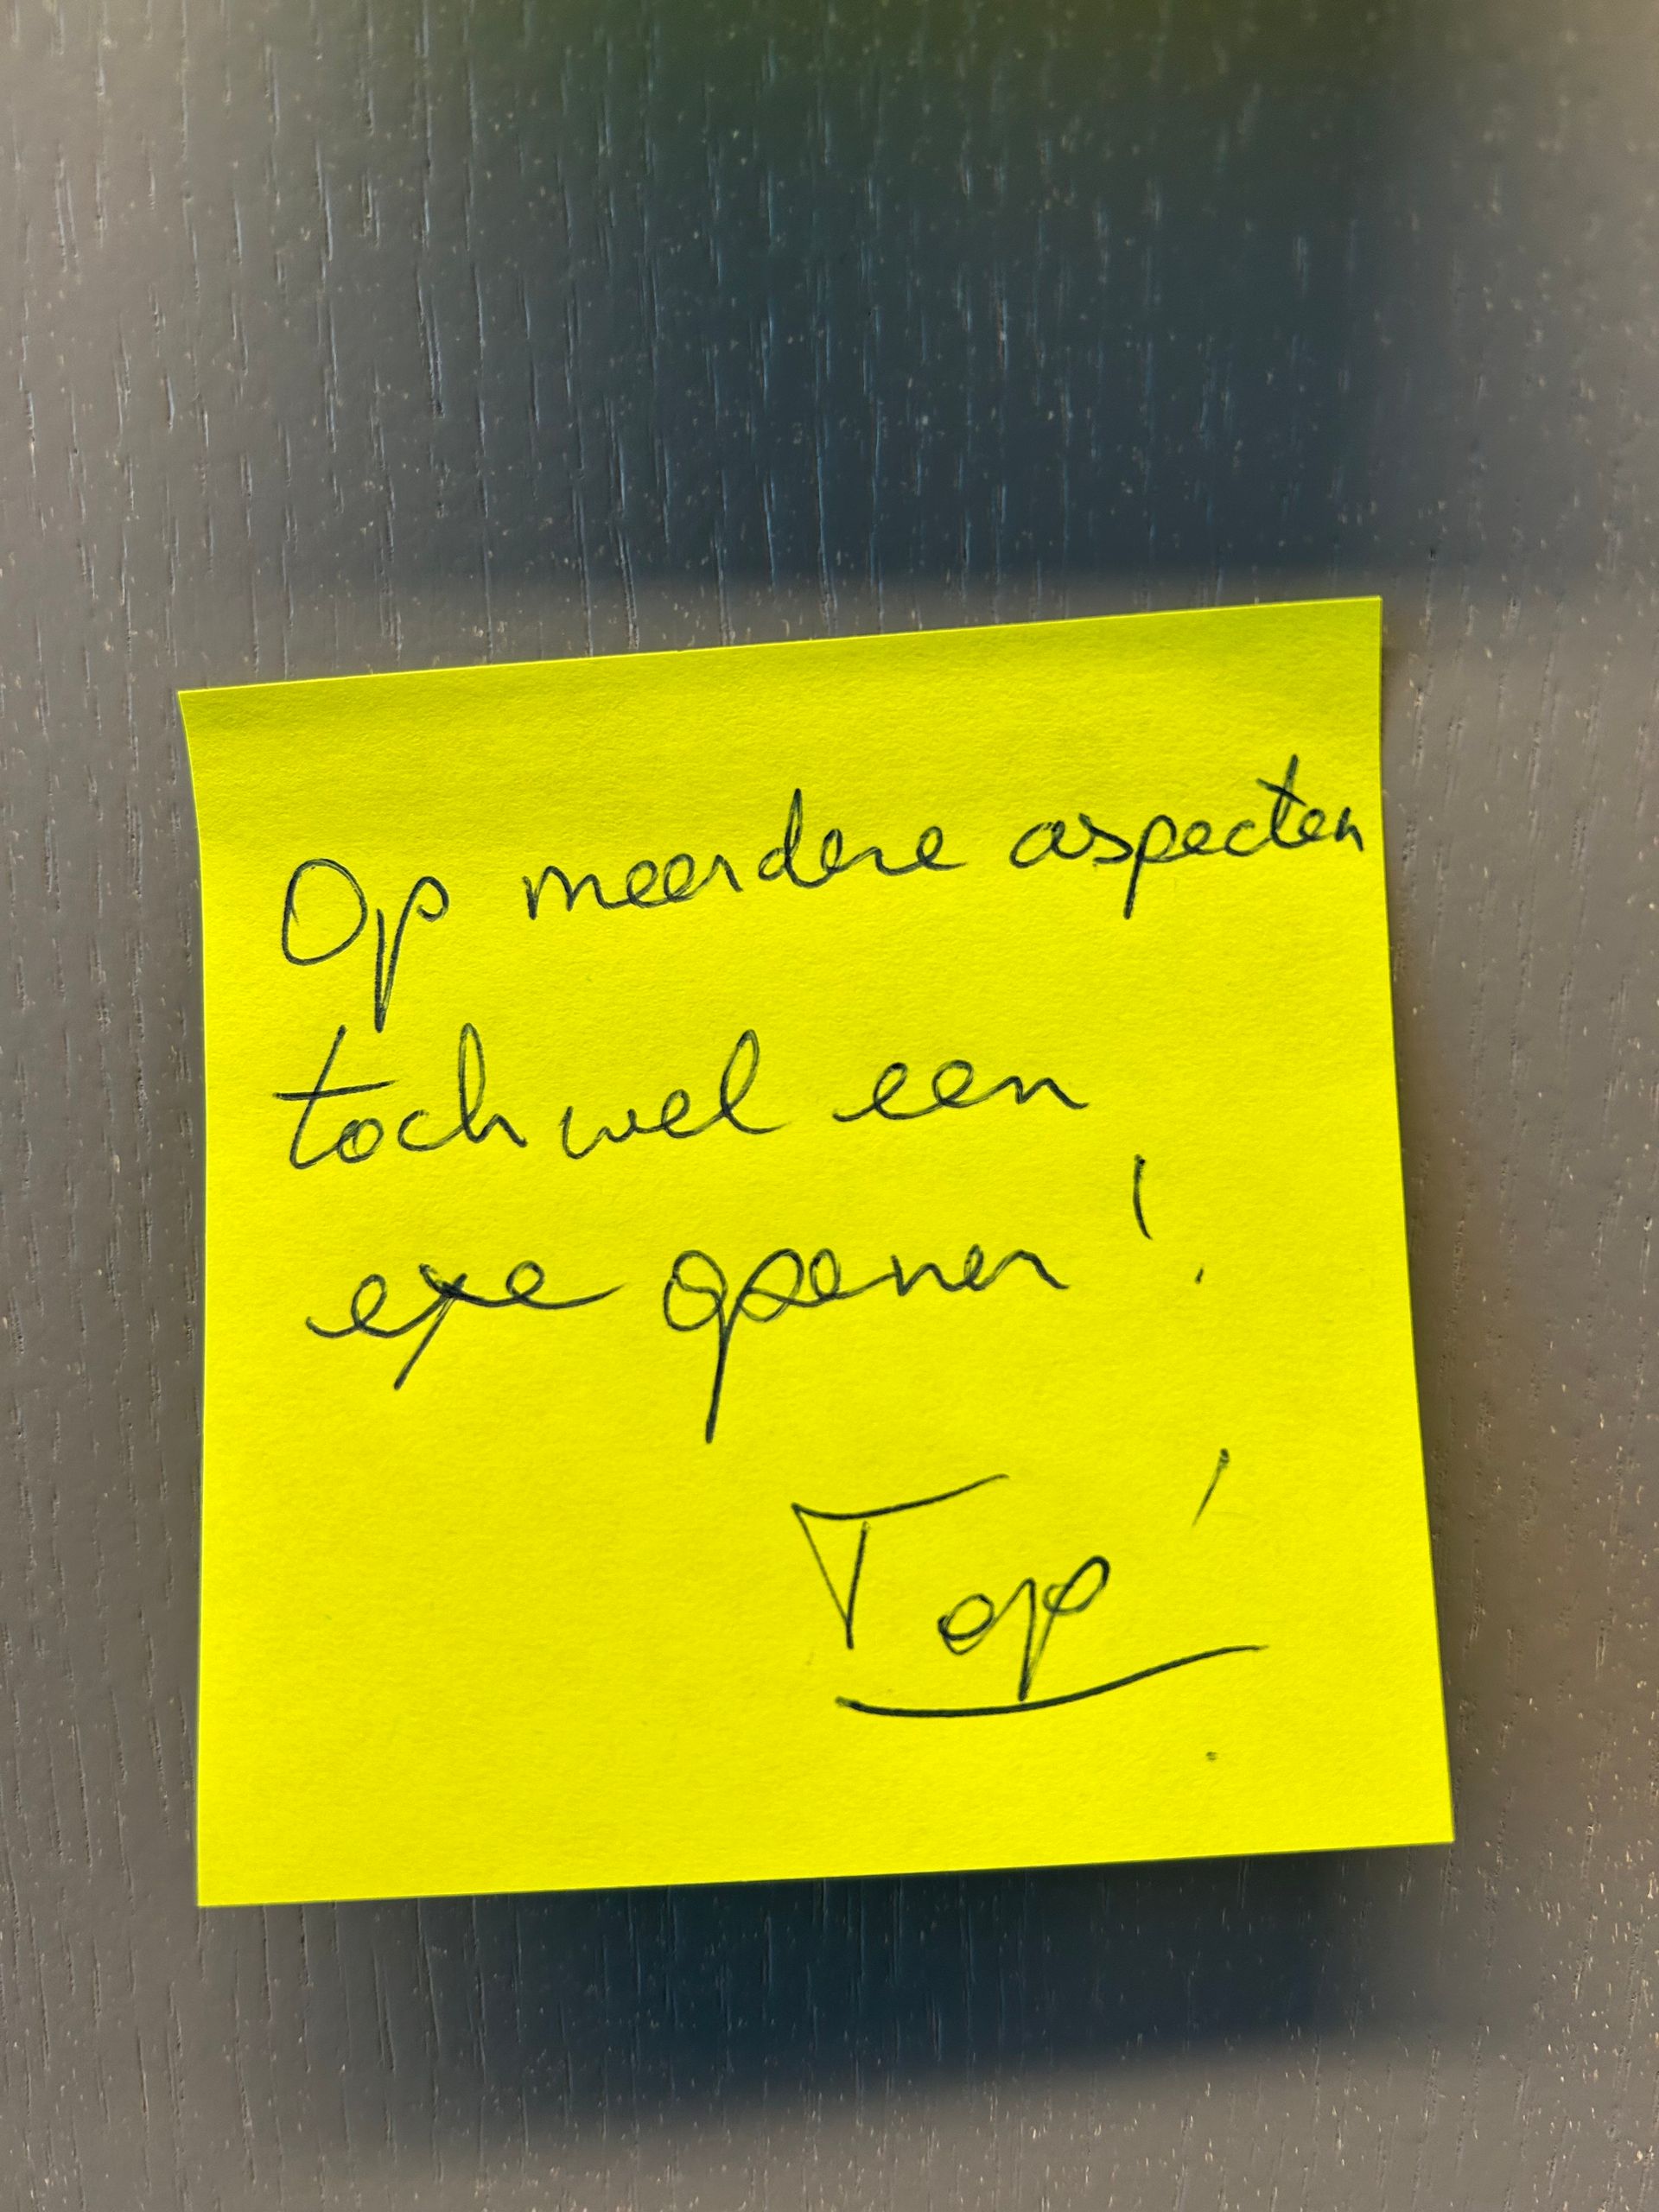 Op meerdere aspecten
toch wel een
eye opener!
Top!